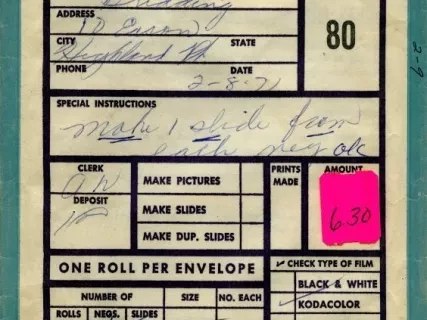 Gridding
ADDRESS 10 Eason
80
CITY Highland Pk STATE
PHONE DATE
2-8-71
2-9
SPECIAL INSTRUCTIONS
make 1 slide from
each neg ok
CLERK
DEPOSIT
MAKE PICTURES
MAKE SLIDES
MAKE DUP. SLIDES
PRINTS MADE
AMOUNT
6.30
ONE ROLL PER ENVELOPE
✓ CHECK TYPE OF FILM
BLACK & WHITE
KODACOLOR
NUMBER OF SIZE NO. EACH
ROLLS NEGS. SLIDES